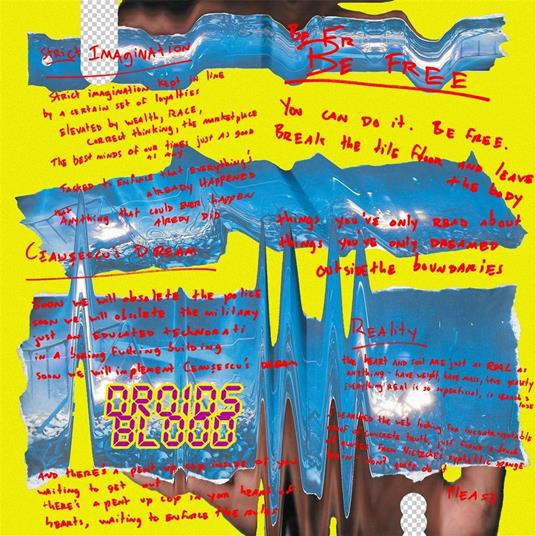 Strict IMAgINATION
Strict imagination kept in line
by a certain set of loyalties
Elevated by wealth, RACE,
correct thinking, the marketplace
The best minds of our times just as good
as any
Tasked to enforce that everything's
alREADY HAPPENED
that
Anything that could ever happen
AlreADy DID
CEAUSESCU'S DREAM
Soon we will obsolete the police
soon we will obsolete the military
just an EDUCATED techNORATI
in A boring fucking building
soon we will implement CEAUSESCU'S DREAM
DROIDS
BLOOD
AND tHERE'S A pent up cop inside of you
waiting to get out
there's A pent up cop in your heart of
hearts, waiting to ENforce the rules
BE FR
BE FREE
You CAN DO it. BE FREE.
BREAK the tile floor AND LEAVE
the BODY
things you've only READ About
things you've only DREAMED
outside the bounDARIES
Reality
the HEART AND soil ARE just as REAL as
anything - have weight, have mass, have gravity
Everything REAl is so superficial, is
I SEARCHED the web looking for incontrovertible
proof of concrete truth, just
of from Nietzsche's syphilitic sponge
don't
PLEASE